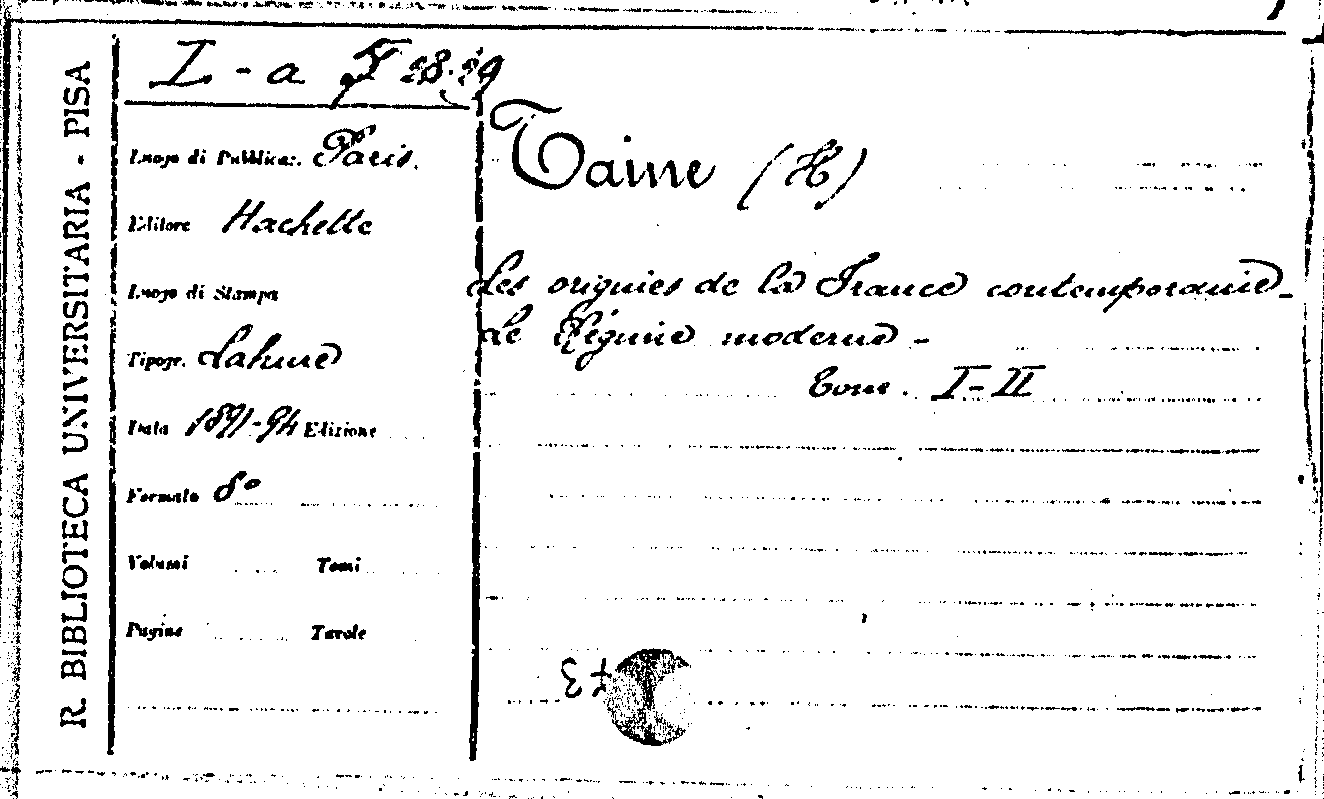 R. BIBLIOTECA UNIVERSITARIA - PISA
I - a 28-29
Luogo di Pubblicaz. Paris.
Editore Hachette
Luogo di Stampa
Tipogr. Lahure
Data 1891-94 Edizione
Formato 8º
Volumi Tomi
Pagine Tavole
Taine (H)
Les origines de la France contemporaine -
Le Régime moderne -
Tome. I-II